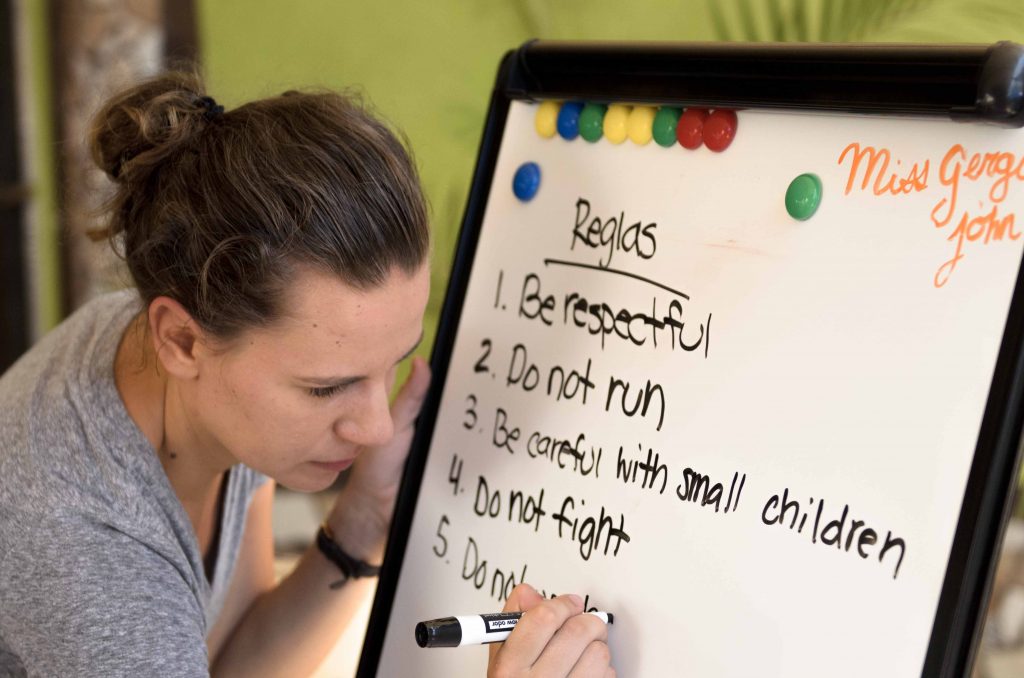 Miss
john
Reglas
1. Be respectful
2. Do not run
3. Be careful with small children
4. Do not fight
5. Do not
low odor